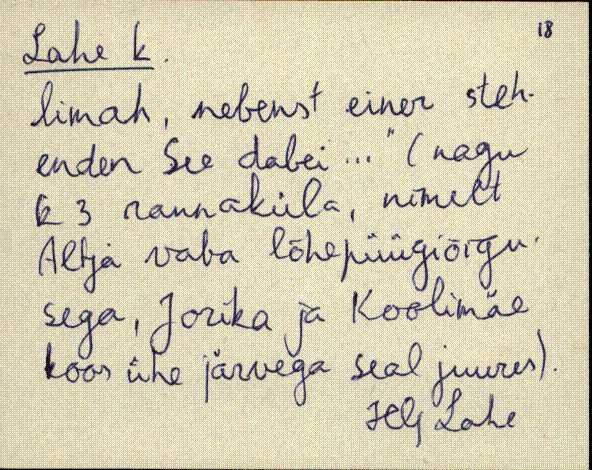 18
Lahe k.
limah, nebenst einer steh-
enden See dabei..." (nagu
k 3 rannaküla, nimelt
Altja vaba lõhepüügiõigu-
sega, Jorika ja Koolimäe
koos ühe järvega seal juures).
Lahe